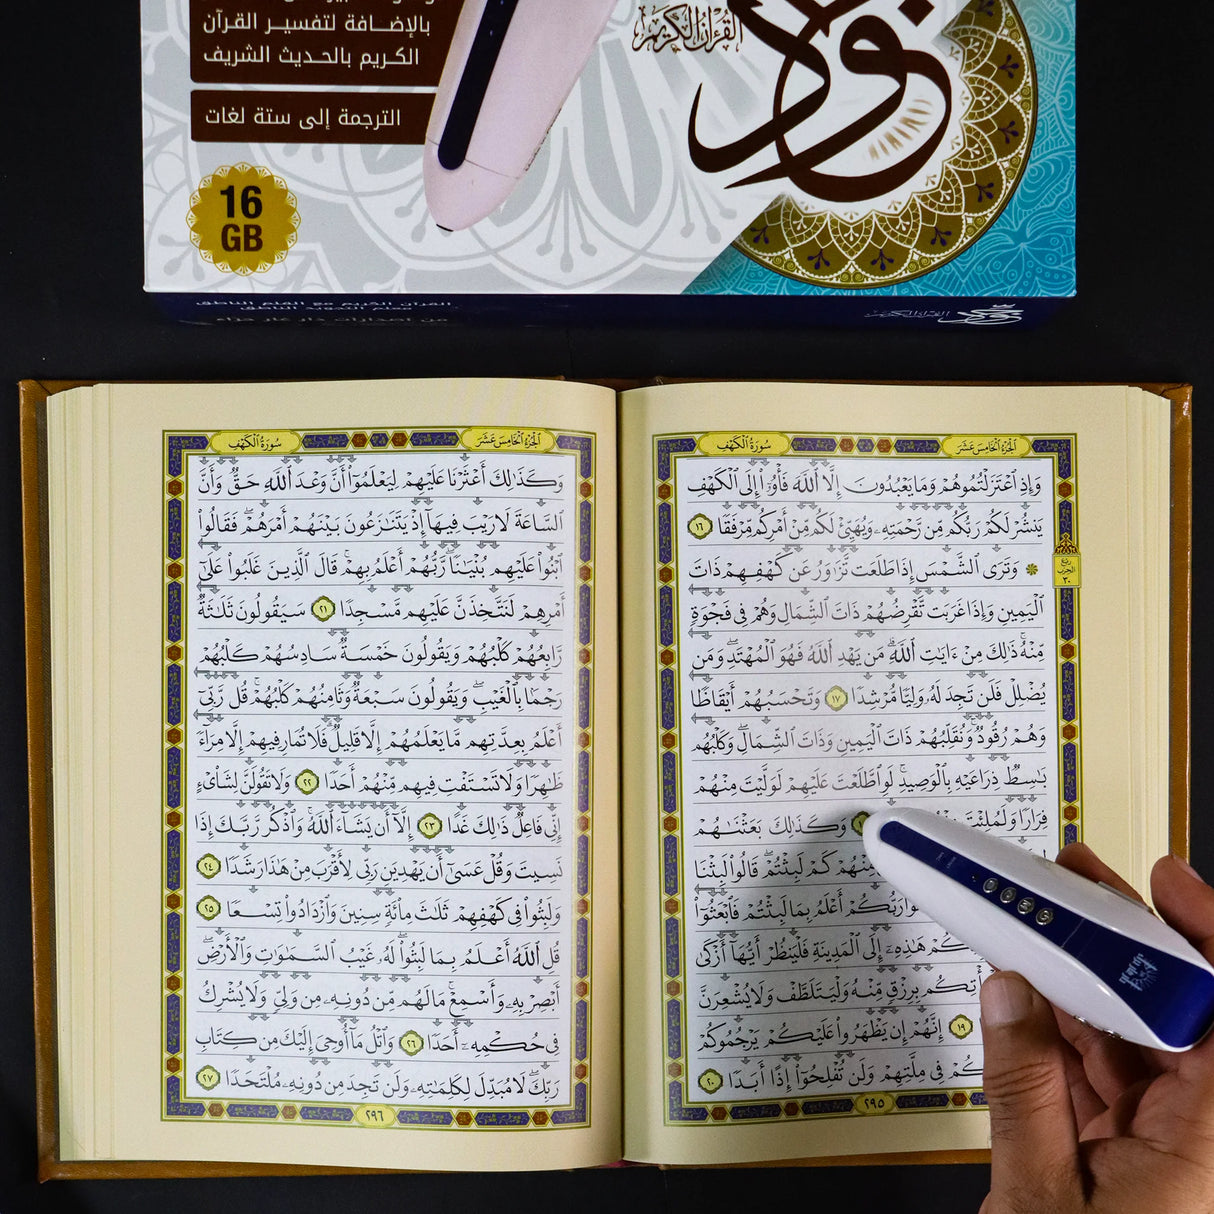 بالإضافة لتفسير القرآن
الكريم بالحديث الشريف
الترجمة إلى ستة لغات
16
GB
القرآن الكريم
نور
القرآن الكريم مع القلم الناطق
معلم التجويد الناطق
الجزء الخامس عشر
سورة الكهف
وَإِذِ ٱعْتَزَلْتُمُوهُمْ وَمَا يَعْبُدُونَ إِلَّا ٱللَّهَ فَأْوُۥٓا۟ إِلَى ٱلْكَهْفِ
يَنشُرْ لَكُمْ رَبُّكُم مِّن رَّحْمَتِهِۦ وَيُهَيِّئْ لَكُم مِّنْ أَمْرِكُم مِّرْفَقًا ١٦
۞ وَتَرَى ٱلشَّمْسَ إِذَا طَلَعَت تَّزَٰوَرُ عَن كَهْفِهِمْ ذَاتَ
ٱلْيَمِينِ وَإِذَا غَرَبَت تَّقْرِضُهُمْ ذَاتَ ٱلشِّمَالِ وَهُمْ فِى فَجْوَةٍ
مِّنْهُ ۚ ذَٰلِكَ مِنْ ءَايَٰتِ ٱللَّهِ ۗ مَن يَهْدِ ٱللَّهُ فَهُوَ ٱلْمُهْتَدِ ۖ وَمَن
يُضْلِلْ فَلَن تَجِدَ لَهُۥ وَلِيًّا مُّرْشِدًا ١٧ وَتَحْسَبُهُمْ أَيْقَاظًا
وَهُمْ رُقُودٌ ۚ وَنُقَلِّبُهُمْ ذَاتَ ٱلْيَمِينِ وَذَاتَ ٱلشِّمَالِ ۖ وَكَلْبُهُم
بَٰسِطٌ ذِرَاعَيْهِ بِٱلْوَصِيدِ ۚ لَوِ ٱطَّلَعْتَ عَلَيْهِمْ لَوَلَّيْتَ مِنْهُمْ
فِرَارًا وَلَمُلِئْتَ وَكَذَٰلِكَ بَعَثْنَٰهُمْ
مِّنْهُمْ كَمْ لَبِثْتُمْ ۖ قَالُوا۟ لَبِثْنَا
رَبُّكُمْ أَعْلَمُ بِمَا لَبِثْتُمْ فَٱبْعَثُوٓا۟
هَٰذِهِۦٓ إِلَى ٱلْمَدِينَةِ فَلْيَنظُرْ أَيُّهَآ أَزْكَىٰ
بِرِزْقٍ مِّنْهُ وَلْيَتَلَطَّفْ وَلَا يُشْعِرَنَّ
١٩ إِنَّهُمْ إِن يَظْهَرُوا۟ عَلَيْكُمْ يَرْجُمُوكُمْ
فِى مِلَّتِهِمْ وَلَن تُفْلِحُوٓا۟ إِذًا أَبَدًا ٢٠
٢٩٥
ربع
الحزب
٣٠
الجزء الخامس عشر
سورة الكهف
وَكَذَٰلِكَ أَعْثَرْنَا عَلَيْهِمْ لِيَعْلَمُوٓا۟ أَنَّ وَعْدَ ٱللَّهِ حَقٌّ وَأَنَّ
ٱلسَّاعَةَ لَا رَيْبَ فِيهَآ إِذْ يَتَنَٰزَعُونَ بَيْنَهُمْ أَمْرَهُمْ ۖ فَقَالُوا۟
ٱبْنُوا۟ عَلَيْهِم بُنْيَٰنًا ۖ رَّبُّهُمْ أَعْلَمُ بِهِمْ ۚ قَالَ ٱلَّذِينَ غَلَبُوا۟ عَلَىٰٓ
أَمْرِهِمْ لَنَتَّخِذَنَّ عَلَيْهِم مَّسْجِدًا ٢١ سَيَقُولُونَ ثَلَٰثَةٌ
رَّابِعُهُمْ كَلْبُهُمْ وَيَقُولُونَ خَمْسَةٌ سَادِسُهُمْ كَلْبُهُمْ
رَجْمًۢا بِٱلْغَيْبِ ۖ وَيَقُولُونَ سَبْعَةٌ وَثَامِنُهُمْ كَلْبُهُمْ ۚ قُل رَّبِّىٓ
أَعْلَمُ بِعِدَّتِهِم مَّا يَعْلَمُهُمْ إِلَّا قَلِيلٌ ۗ فَلَا تُمَارِ فِيهِمْ إِلَّا مِرَآءً
ظَٰهِرًا وَلَا تَسْتَفْتِ فِيهِم مِّنْهُمْ أَحَدًا ٢٢ وَلَا تَقُولَنَّ لِشَا۟ىْءٍ
إِنِّى فَاعِلٌ ذَٰلِكَ غَدًا ٢٣ إِلَّآ أَن يَشَآءَ ٱللَّهُ ۚ وَٱذْكُر رَّبَّكَ إِذَا
نَسِيتَ وَقُلْ عَسَىٰٓ أَن يَهْدِيَنِ رَبِّى لِأَقْرَبَ مِنْ هَٰذَا رَشَدًا ٢٤
وَلَبِثُوا۟ فِى كَهْفِهِمْ ثَلَٰثَ مِا۟ئَةٍ سِنِينَ وَٱزْدَادُوا۟ تِسْعًا ٢٥
قُلِ ٱللَّهُ أَعْلَمُ بِمَا لَبِثُوا۟ ۖ لَهُۥ غَيْبُ ٱلسَّمَٰوَٰتِ وَٱلْأَرْضِ ۖ
أَبْصِرْ بِهِۦ وَأَسْمِعْ ۚ مَا لَهُم مِّن دُونِهِۦ مِن وَلِىٍّ وَلَا يُشْرِكُ
فِى حُكْمِهِۦٓ أَحَدًا ٢٦ وَٱتْلُ مَآ أُوحِىَ إِلَيْكَ مِن كِتَابِ
رَبِّكَ ۖ لَا مُبَدِّلَ لِكَلِمَٰتِهِۦ وَلَن تَجِدَ مِن دُونِهِۦ مُلْتَحَدًا ٢٧
٢٩٦